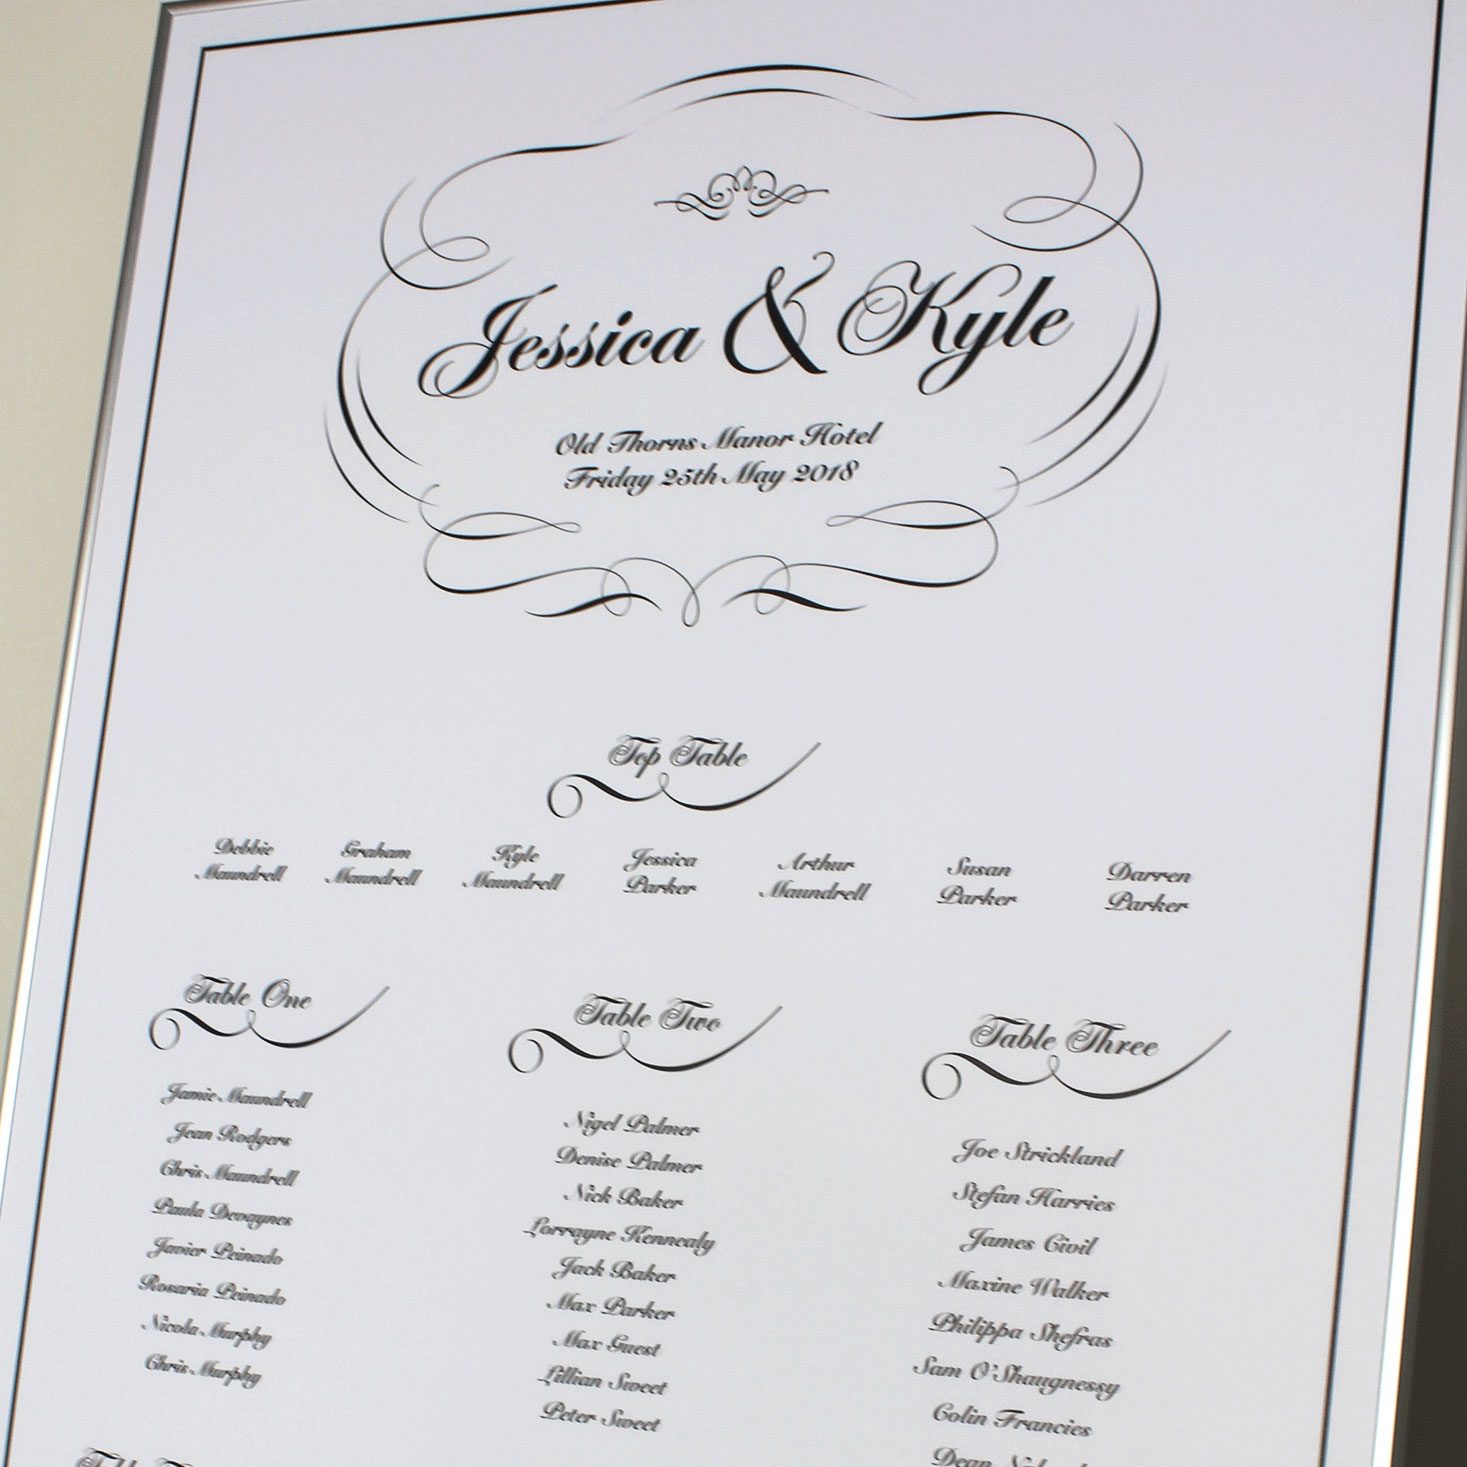 Jessica & Kyle
Old Thorns Manor Hotel
Friday 25th May 2018
Top Table
Debbie Maundrell
Graham Maundrell
Kyle Maundrell
Jessica Parker
Arthur Maundrell
Susan Parker
Darren Parker
Table One
Jamie Maundrell
Jean Rodgers
Chris Maundrell
Paula Devaynes
Javier Peinado
Rosaria Peinado
Nicola Murphy
Chris Murphy
Table Two
Nigel Palmer
Denise Palmer
Nick Baker
Lorrayne Kennealy
Jack Baker
Max Parker
Max Guest
Lillian Sweet
Peter Sweet
Table Three
Joe Strickland
Stefan Harries
James Civil
Maxine Walker
Philippa Shefras
Sam O'Shaugnessy
Colin Francies
Dean
Table